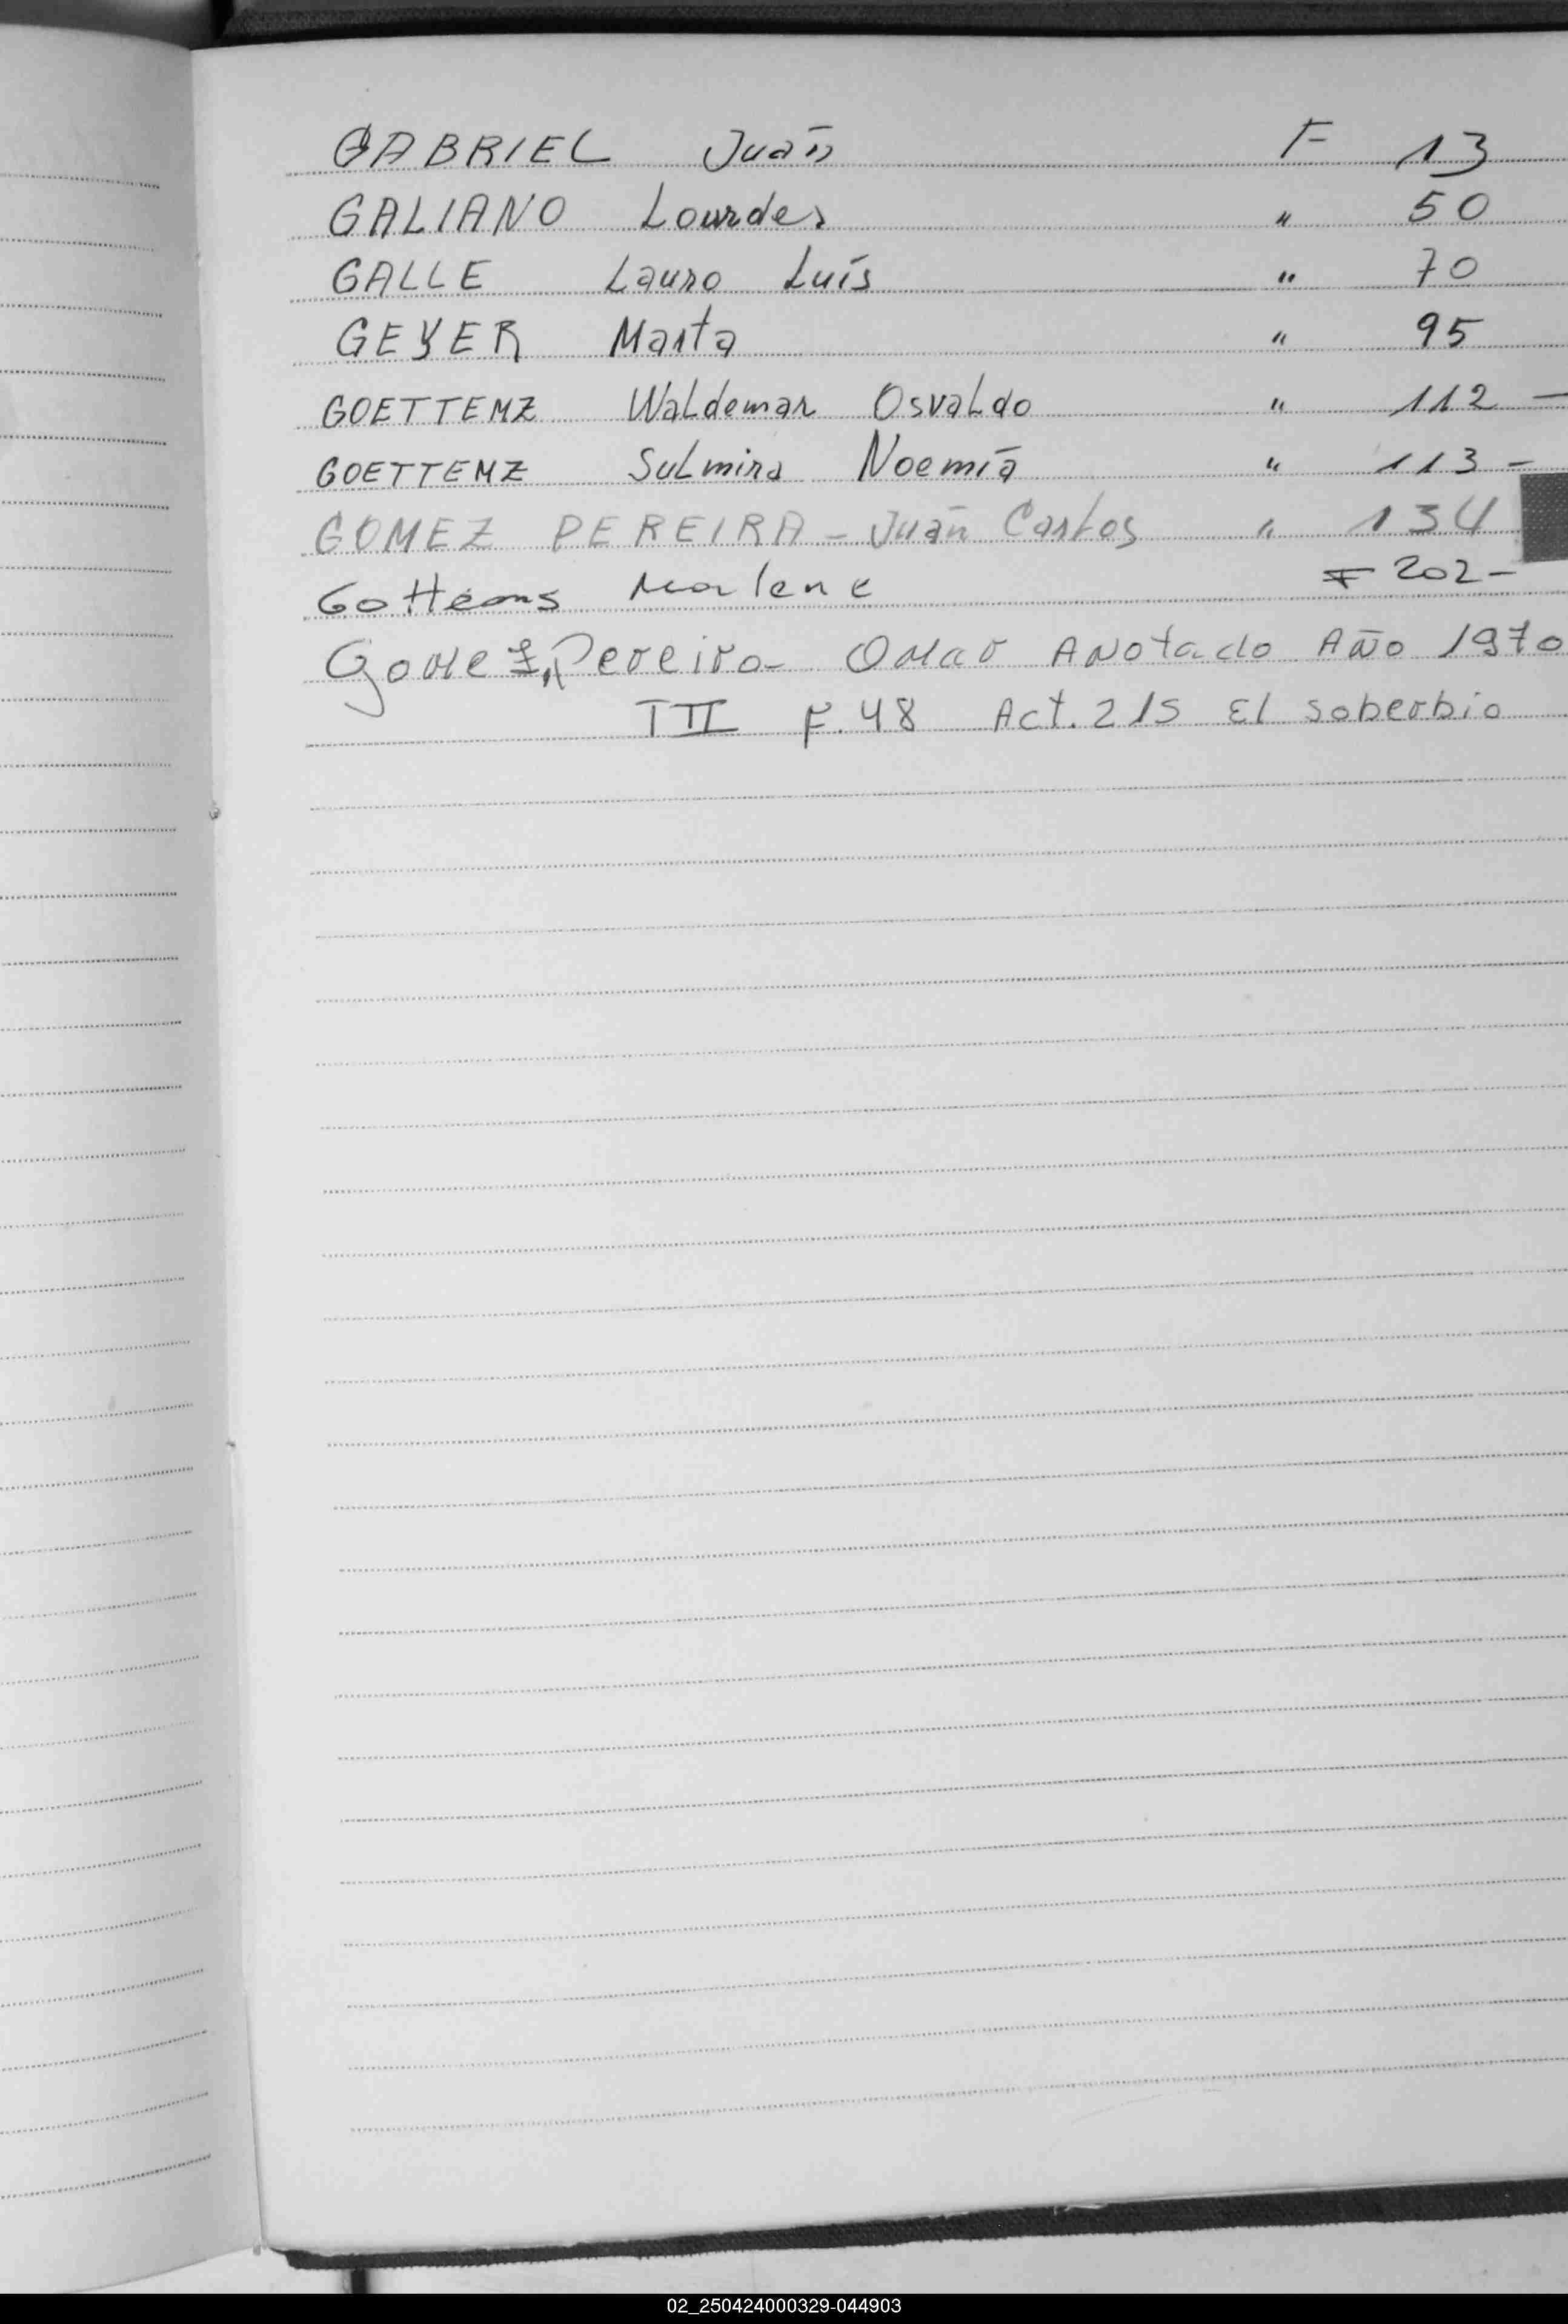 GABRIEL Juan F 13
GALIANO Lourdes " 50
GALLE Lauro Luís " 70
GEYER Marta " 95
GOETTEMZ Waldemar Osvaldo " 112 -
GOETTEMZ Sulmira Noemia " 113 -
GOMEZ PEREIRA - Juan Carlos " 134
Gottems Marlene F 202 -
Gomez Pereira - Omar Anotado Año 1970
T II F. 48 Act. 215 El soberbio
02_250424000329-044903